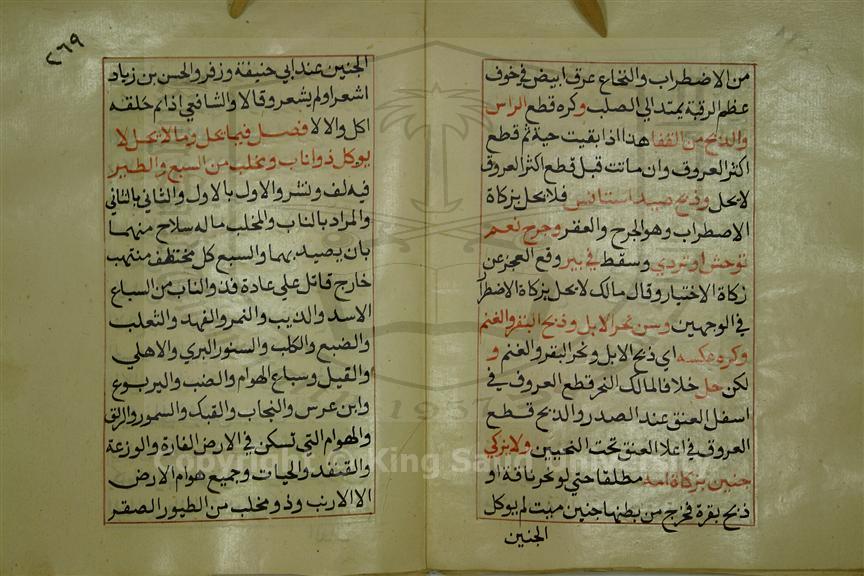 من الاضطراب والنخاع عرق ابيض في خوف
عظم الرقبة يمتد الي الصلب وكره قطع الراس
والذبح من القفا هذا اذا بقيت حية ثم قطع
اكثر العروق وان ماتت قبل قطع اكثر العروق
لا يحل وذبح صيد استانس فلا يحل بزكاة
الاصطراب وهو الجرح والعقر وجرح نعم
توحش او تردي وسقط في بير وقع العجز عن
زكاة الاختيار وقال مالك لا يحل بزكاة الاضطرا
في الوجهين وسن نحر الابل وذبح البقر والغنم
وكره عكسه اي ذبح الابل ونحر البقر والغنم و
لكن حل خلافا لمالك النحر قطع العروق في
اسفل العنق عند الصدر والذبح قطع
العروق في اعلا العنق تحت اللحيين ولا يزكي
جنين بزكاة امه مطلقا حتي لو نحر ناقة او
ذبح بقرة فخرج من بطنها جنين ميت لم يوكل
الجنين
٢٦٩
الجنين عند ابي حنيفة وزفر والحسن بن زياد
اشعر اولم يشعر وقالا والشافعي اذا تم خلقه
اكل والا لا فصل فيما يحل وما لا يحل لا
يوكل ذو اناب ومخلب من السبع والطير
فيه لف ونشر والاول بالاول والثاني بالثاني
والمراد بالناب والمخلب ما له سلاح منهما
بان يصيد بهما والسبع كل مختطف منتهب
خارج قاتل علي عادة فذ والناب من السباع
الاسد والذيب والنمر والفهد والثعلب
والضبع والكلب والسنور البري والاهلي
والفيل وسباع الهوام والضب واليربوع
وابن عرس والنجاب والفنك والسمور والزلق
والهوام التي تسكن في الارض الفارة والوزعة
والقنفد والحيات وجميع هوام الارض
الا الارنب وذو مخلب من الطيور الصقر
Copyright © King Saud University
1957